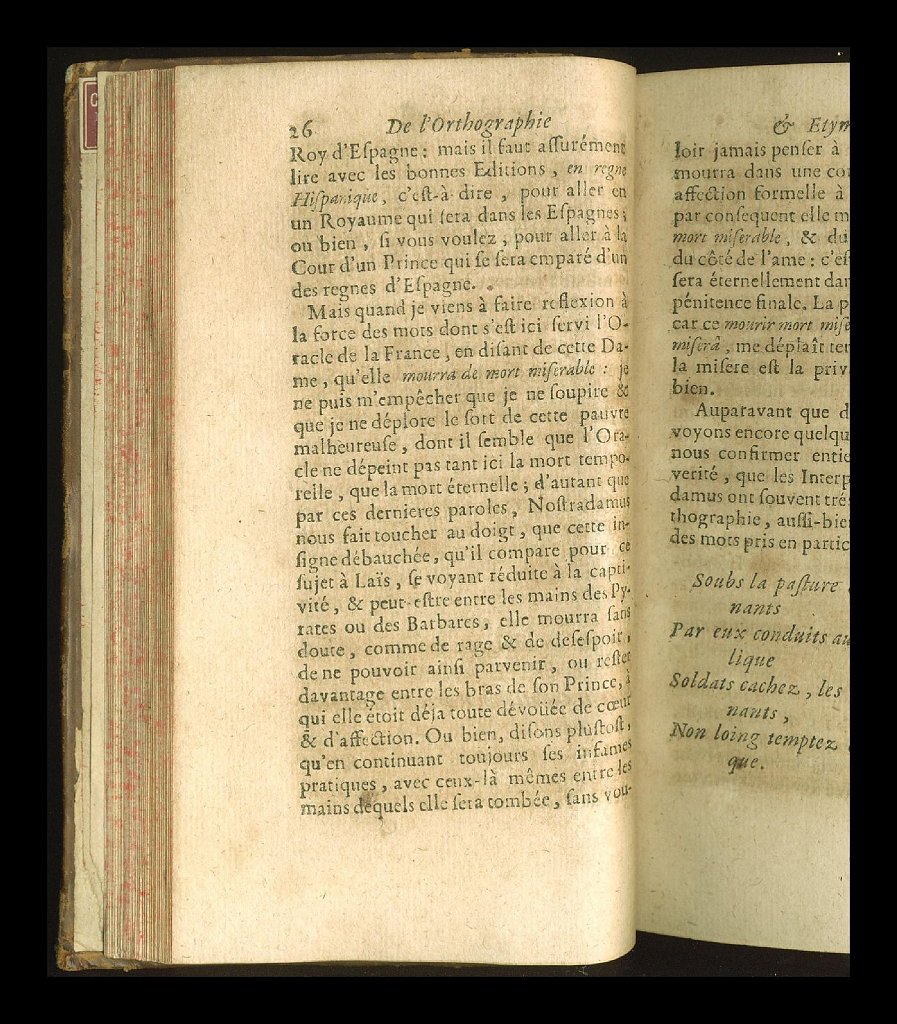 26 De l'Orthographie
Roy d'Espagne: mais il faut assurément
lire avec les bonnes Editions, en regne
Hispanique, c'est-à-dire, pour aller en
un Royaume qui sera dans les Espagnes;
ou bien, si vous voulez, pour aller à la
Cour d'un Prince qui se sera emparé d'un
des regnes d'Espagne.
Mais quand je viens à faire reflexion à
la force des mots dont s'est ici servi l'O-
racle de la France, en disant de cette Da-
me, qu'elle mourra de mort miserable: je
ne puis m'empêcher que je ne soupire &
que je ne déplore le sort de cette pauvre
malheureuse, dont il semble que l'Ora-
cle ne dépeint pas tant ici la mort tempo-
relle, que la mort éternelle; d'autant que
par ces dernieres paroles, Nostradamus
nous fait toucher au doigt, que cette in-
signe débauchée, qu'il compare pour ce
sujet à Laïs, se voyant réduite à la capti-
vité, & peut-estre entre les mains des Py-
rates ou des Barbares, elle mourra sans
doute, comme de rage & de desespoir,
de ne pouvoir ainsi parvenir, ou rester
davantage entre les bras de son Prince, à
qui elle étoit déja toute dévoüée de cœur
& d'affection. Ou bien, disons plustost,
qu'en continuant toujours ses infames
pratiques, avec ceux-là mêmes entre les
mains dequels elle sera tombée, sans vou-
& Etym
loir jamais penser à
mourra dans une co
affection formelle à
par consequent elle m
mort miserable, & du
du côté de l'ame: c'es
sera éternellement dan
pénitence finale. La p
car ce mourir mort mise
miserâ, me déplaît ter
la misere est la priv
bien.
Auparavant que d
voyons encore quelqu
nous confirmer entie
verité, que les Interp
damus ont souvent tré
thographie, aussi-bie
des mots pris en partic
Soubs la pasture
nants
Par eux conduits au
lique
Soldats cachez, les
nants,
Non loing temptez
que.